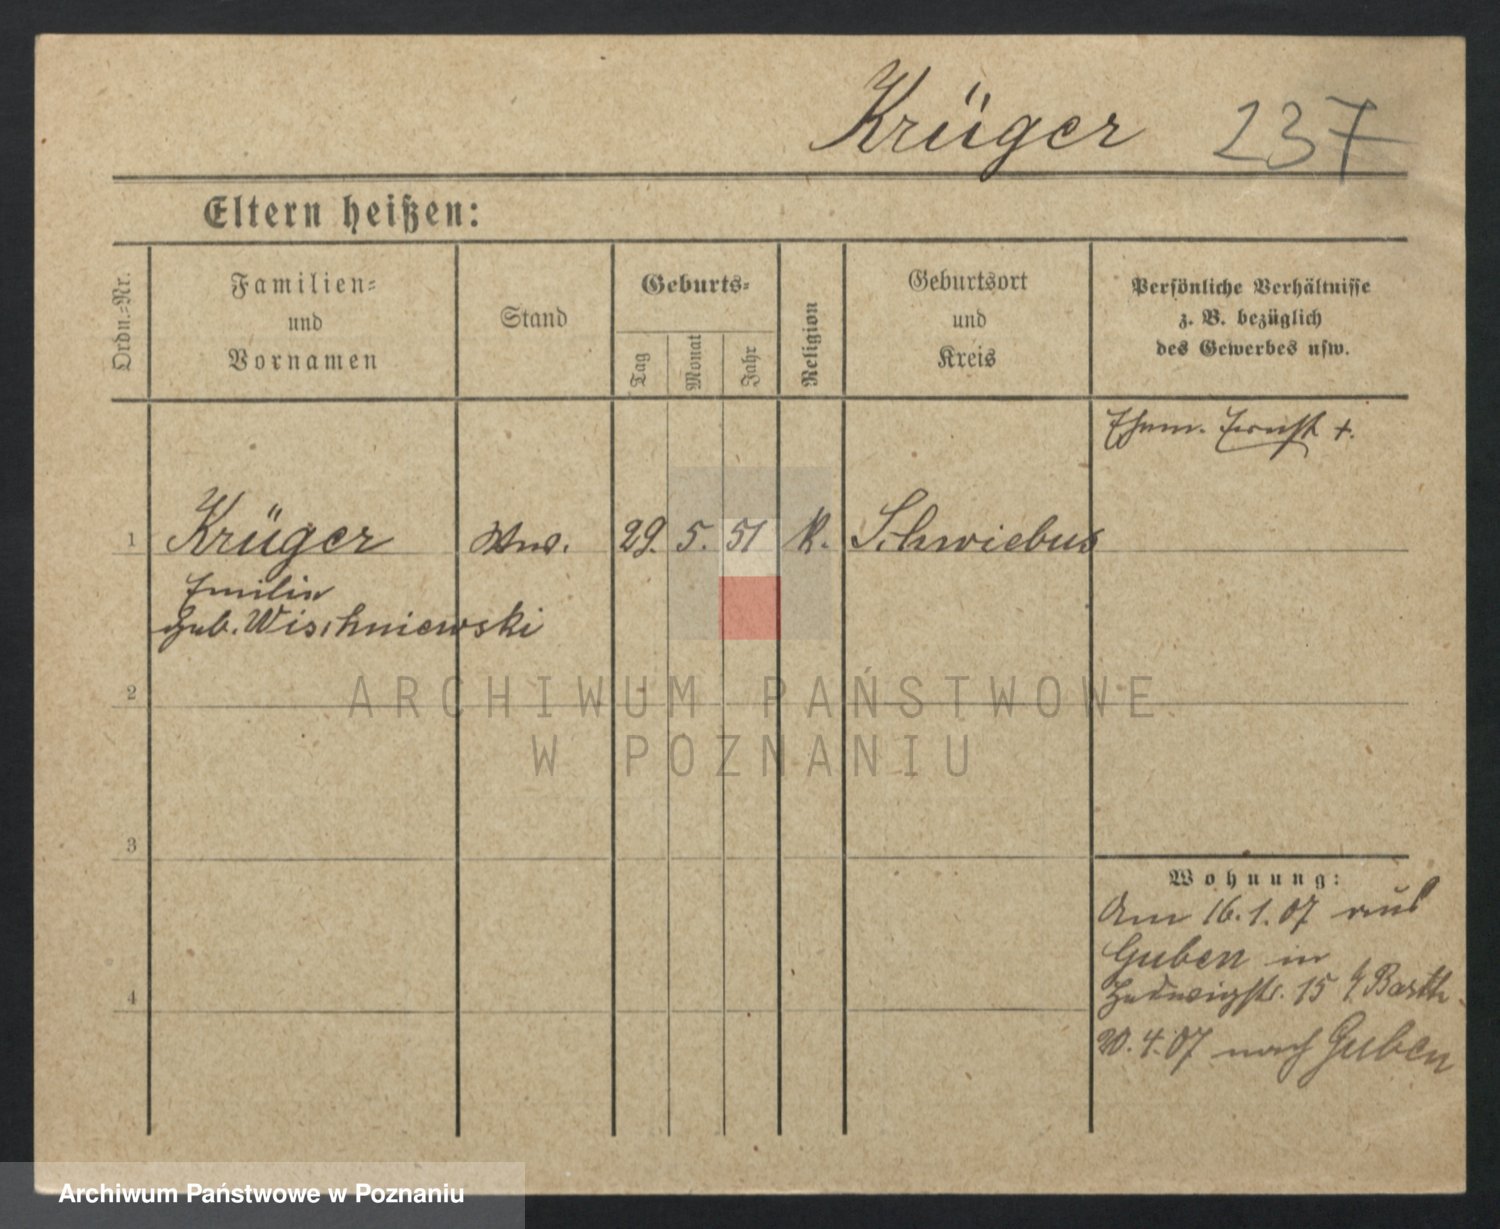 Krüger 237
Eltern heißen:
Ordn.=Nr.
Familien=
und
Vornamen
Stand
Geburts=
Tag
Monat
Jahr
Religion
Geburtsort
und
Kreis
Persönliche Verhältnisse
z. B. bezüglich
des Gewerbes usw.
Ehem. Ernst +.
1 Krüger Ww. 29. 5. 51 k. Schwiebus
Emilie
geb. Wischniewski
2
3
4
Wohnung:
Am 16.1.07 aus
Guben in
Hedwigstr. 15 b/Barth
20.4.07 nach Guben
ARCHIWUM PAŃSTWOWE
W POZNANIU
Archiwum Państwowe w Poznaniu